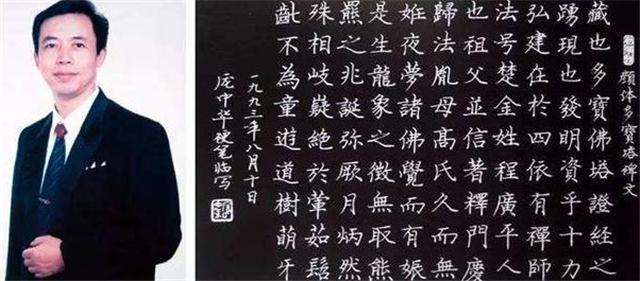 顏体多寶塔碑文
藏也多寶佛塔證經之
踴現也發明資乎十力
弘建在於四依有禪師
法号楚金姓程廣平人
也祖父並信著釋門慶
歸法胤母高氏久而無
姙夜夢諸佛覺而有娠
是生龍象之徵無取熊
羆之兆誕弥厥月炳然
殊相岐嶷絕於葷茹髫
齔不為童遊道樹萌牙
一九九三年八月十日
庞中华硬笔临写